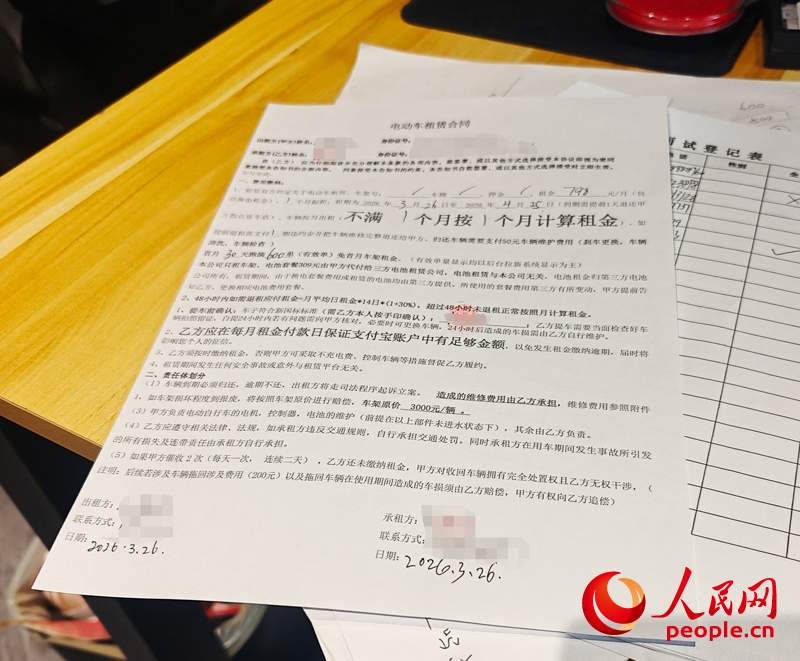 电动车租赁合同
出租方(甲方)姓名: 身份证号:
承租方(乙方)姓名: 身份证号:
一、费用缴纳:
元/月
1个月起租,租期为2026年3月26日至2026年4月25日
不满1个月按1个月计算租金
归还车辆需要支付50元车辆维护费用(刹车更换,车辆
清洗,车辆检查)
首月30天跑满600单(有效单)免首月车架租金。(有效单量显示均以后台拉新系统显示为主)
本公司只租车架,电池套餐309元由甲方代付给三方电池租赁公司,电池租赁与本公司无关。电池租金归第三方电池
公司所有,租赁期间,由于换电套餐费用或租赁的电池均由第三方提供,所使用的套餐费用第三方有所变动,甲方提前告
知乙方,更换相应电池套餐费。
2、48小时内如需退租应付租金=月平均日租金*14日*(1+30%)。超过48小时未退租正常按照月计算租金。
1、提车前确认:车子符合新国标标准(需乙方本人按手印确认): ;乙方提车需要当面检查好车
辆拍照留证,自提24小时内若有问题需向甲方核对,必要时可更换车辆,24小时后造成的车损需由乙方自行维护。
2、乙方应在每月租金付款日保证支付宝账户中有足够金额,以免发生租金缴纳逾期,届时将
影响您个人的征信。
3、乙方须按时缴纳租金,否则甲方可采取不充电费、控制车辆等措施督促乙方履约。
4、租赁期间发生任何安全事故或意外与租赁平台无关。
二、责任体划分
(1)车辆到期必须归还,逾期不还,出租方将走司法程序起诉立案。 造成的维修费用由乙方承担,维修费用参照附件
1,如车架损坏程度到报废,将按照车架原价进行赔偿,车架原价 3000元/辆 。
(3)甲方负责电动自行车的电机,控制器,电池的维护(前提在以上部件未进水状态下),其余由乙方负责。
(4)乙方应遵守相关法律、法规,如承租方违反交通规则,自行承担交通处罚。同时承租方在用车期间发生事故所引发
的所有损失及连带责任由承租方自行承担。
(5)如果甲方催收2次(每天一次,连续二天),乙方还未缴纳租金,甲方对收回车辆拥有完全处置权且乙方无权干涉,(
注明:后续若涉及车辆拖回涉及费用(200元)以及拖回车辆在使用期间造成的车损须由乙方赔偿,甲方有权向乙方追偿)
出租方:
联系方式:
日期:2026.3.26.
承租方:
联系方式:
日期:2026.3.26.
面试登记表
人民网
people.cn